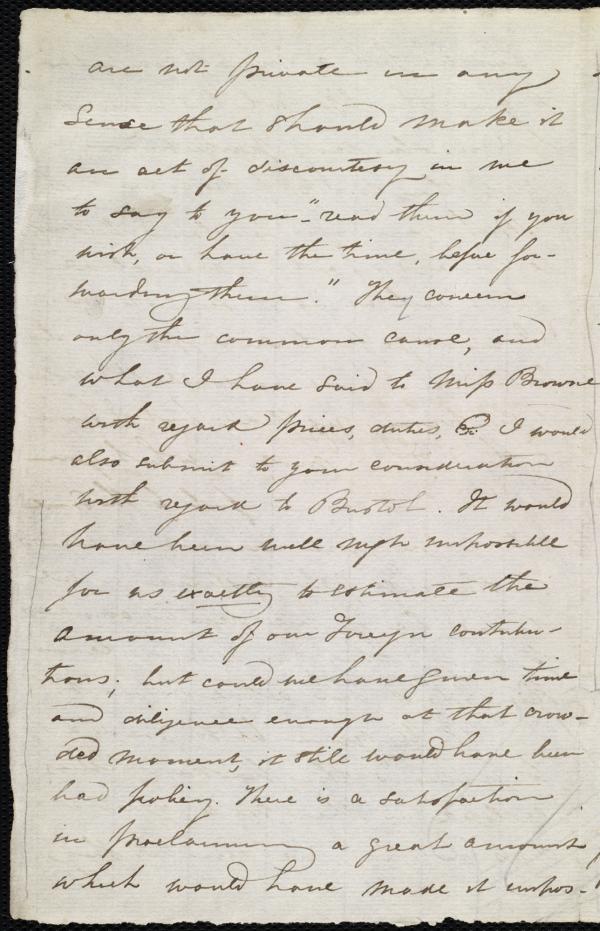 are not private in any
sense that should make it
an act of discourtesy in me
to say to you - "read them if you
wish, or have the time, before for-
warding them." They concern
only the common cause, and
what I have said to Miss Browne
with regard prices, duties, &c. I would
also submit to your consideration
with regard to Bristol. It would
have been well nigh impossible
for us exactly to estimate the
amount of our Foreign contribu-
tions; but could we have given time
and diligence enough at that crow-
ded moment, it still would have been
bad policy. There is a satisfaction
in proclaiming a great amount,
which would have made it impos-